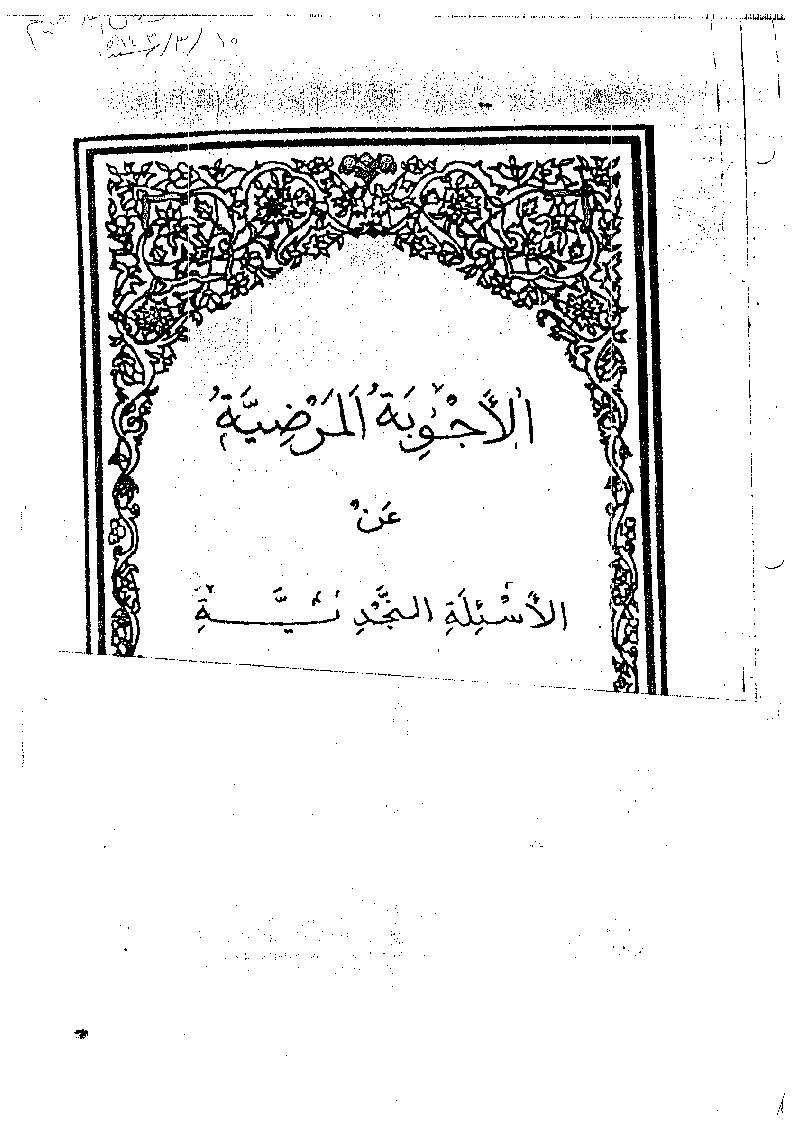 ١٠/٣/
الأَجْوِبَةُ المَرْضِيَّةُ
عَنْ
الأَسْئِلَةِ النَّجْدِيَّةِ